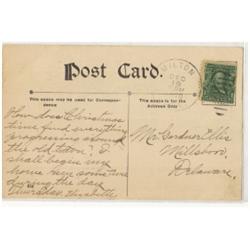 Post Card.
MILTON
DEC
19
This space may be used for Correspondence
This space is for the Address Only
How does Christmas
time find everything
progressing around
the old town? I
shall begin my
home sometime
during the day
Thursday. Elizabeth
Mr. Gardner Ellis
Millsboro,
Delaware.